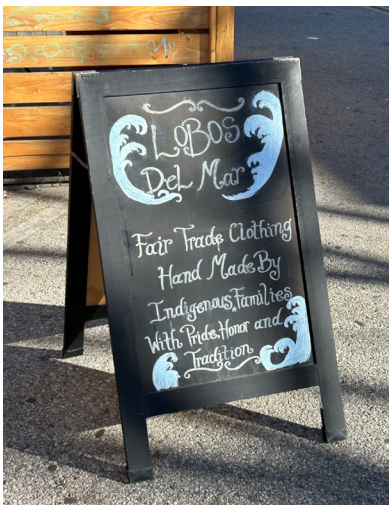 LoBos
Del Mar
Fair Trade Clothing
Hand Made By
Indigenous Families
With Pride, Honor and
Tradition